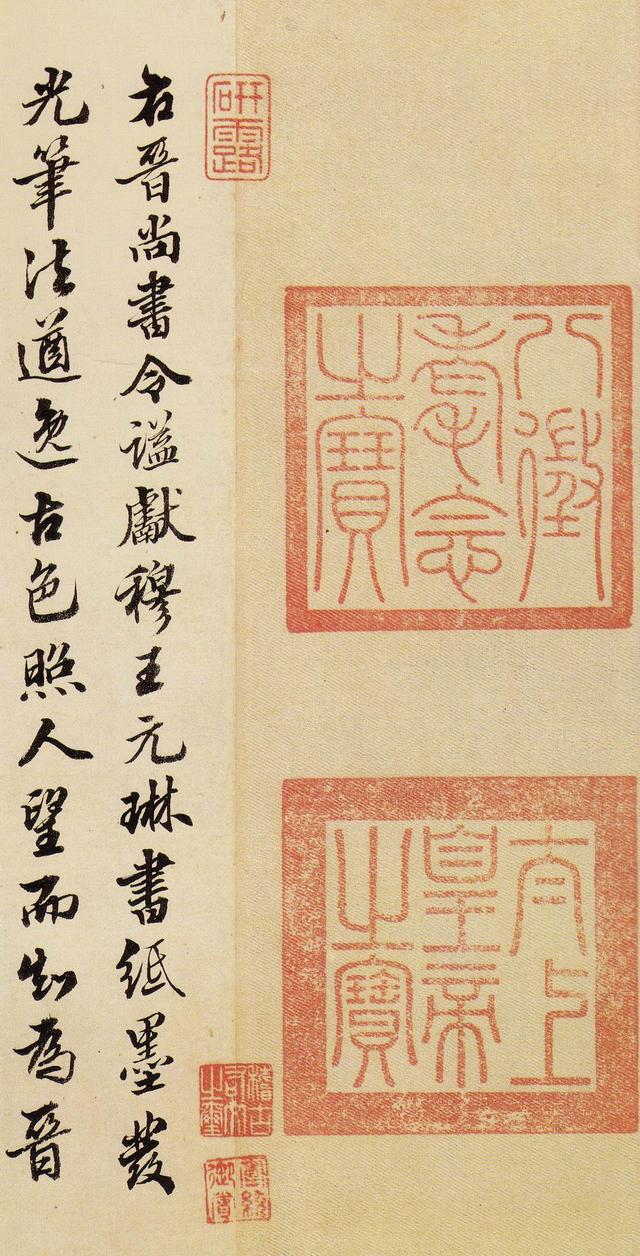 八徵
耄念
之寶
太上
皇帝
之寶
研露
右晉尚書令謚獻穆王元琳書紙墨發
光筆法遒逸古色照人望而知為晉
稽古
右文
之璽